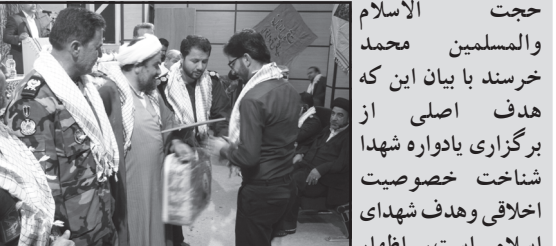 حجت الاسلام
والمسلمین محمد
خرسند با بیان این که
هدف اصلی از
برگزاری یادواره شهدا
شناخت خصوصیت
اخلاقی وهدف شهدای